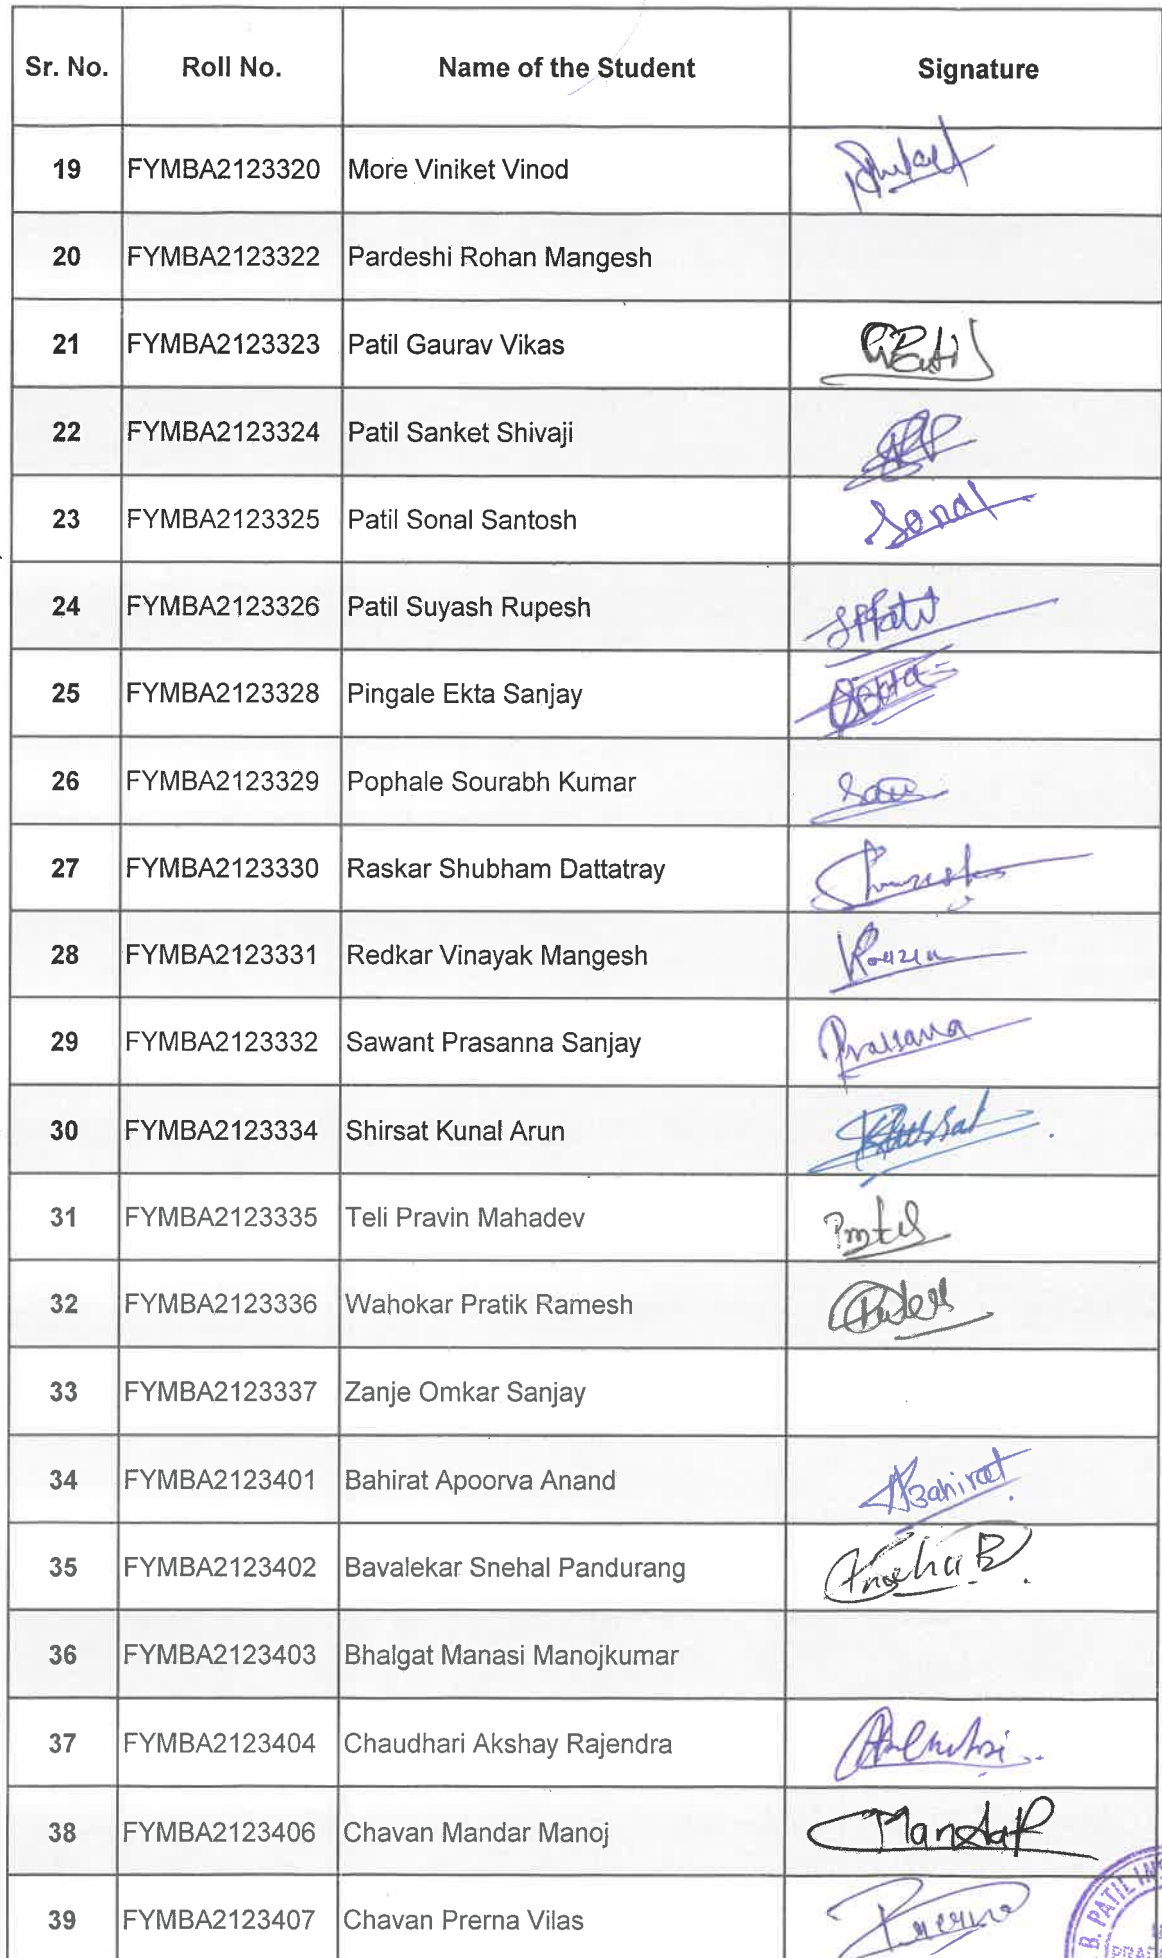 Sr. No. Roll No. Name of the Student Signature
19 FYMBA2123320 More Viniket Vinod
20 FYMBA2123322 Pardeshi Rohan Mangesh
21 FYMBA2123323 Patil Gaurav Vikas GPatil
22 FYMBA2123324 Patil Sanket Shivaji
23 FYMBA2123325 Patil Sonal Santosh Sonal
24 FYMBA2123326 Patil Suyash Rupesh
25 FYMBA2123328 Pingale Ekta Sanjay
26 FYMBA2123329 Pophale Sourabh Kumar
27 FYMBA2123330 Raskar Shubham Dattatray
28 FYMBA2123331 Redkar Vinayak Mangesh
29 FYMBA2123332 Sawant Prasanna Sanjay
30 FYMBA2123334 Shirsat Kunal Arun
31 FYMBA2123335 Teli Pravin Mahadev
32 FYMBA2123336 Wahokar Pratik Ramesh
33 FYMBA2123337 Zanje Omkar Sanjay
34 FYMBA2123401 Bahirat Apoorva Anand ABahirat
35 FYMBA2123402 Bavalekar Snehal Pandurang
36 FYMBA2123403 Bhalgat Manasi Manojkumar
37 FYMBA2123404 Chaudhari Akshay Rajendra
38 FYMBA2123406 Chavan Mandar Manoj Mandar
39 FYMBA2123407 Chavan Prerna Vilas
B. PATIL